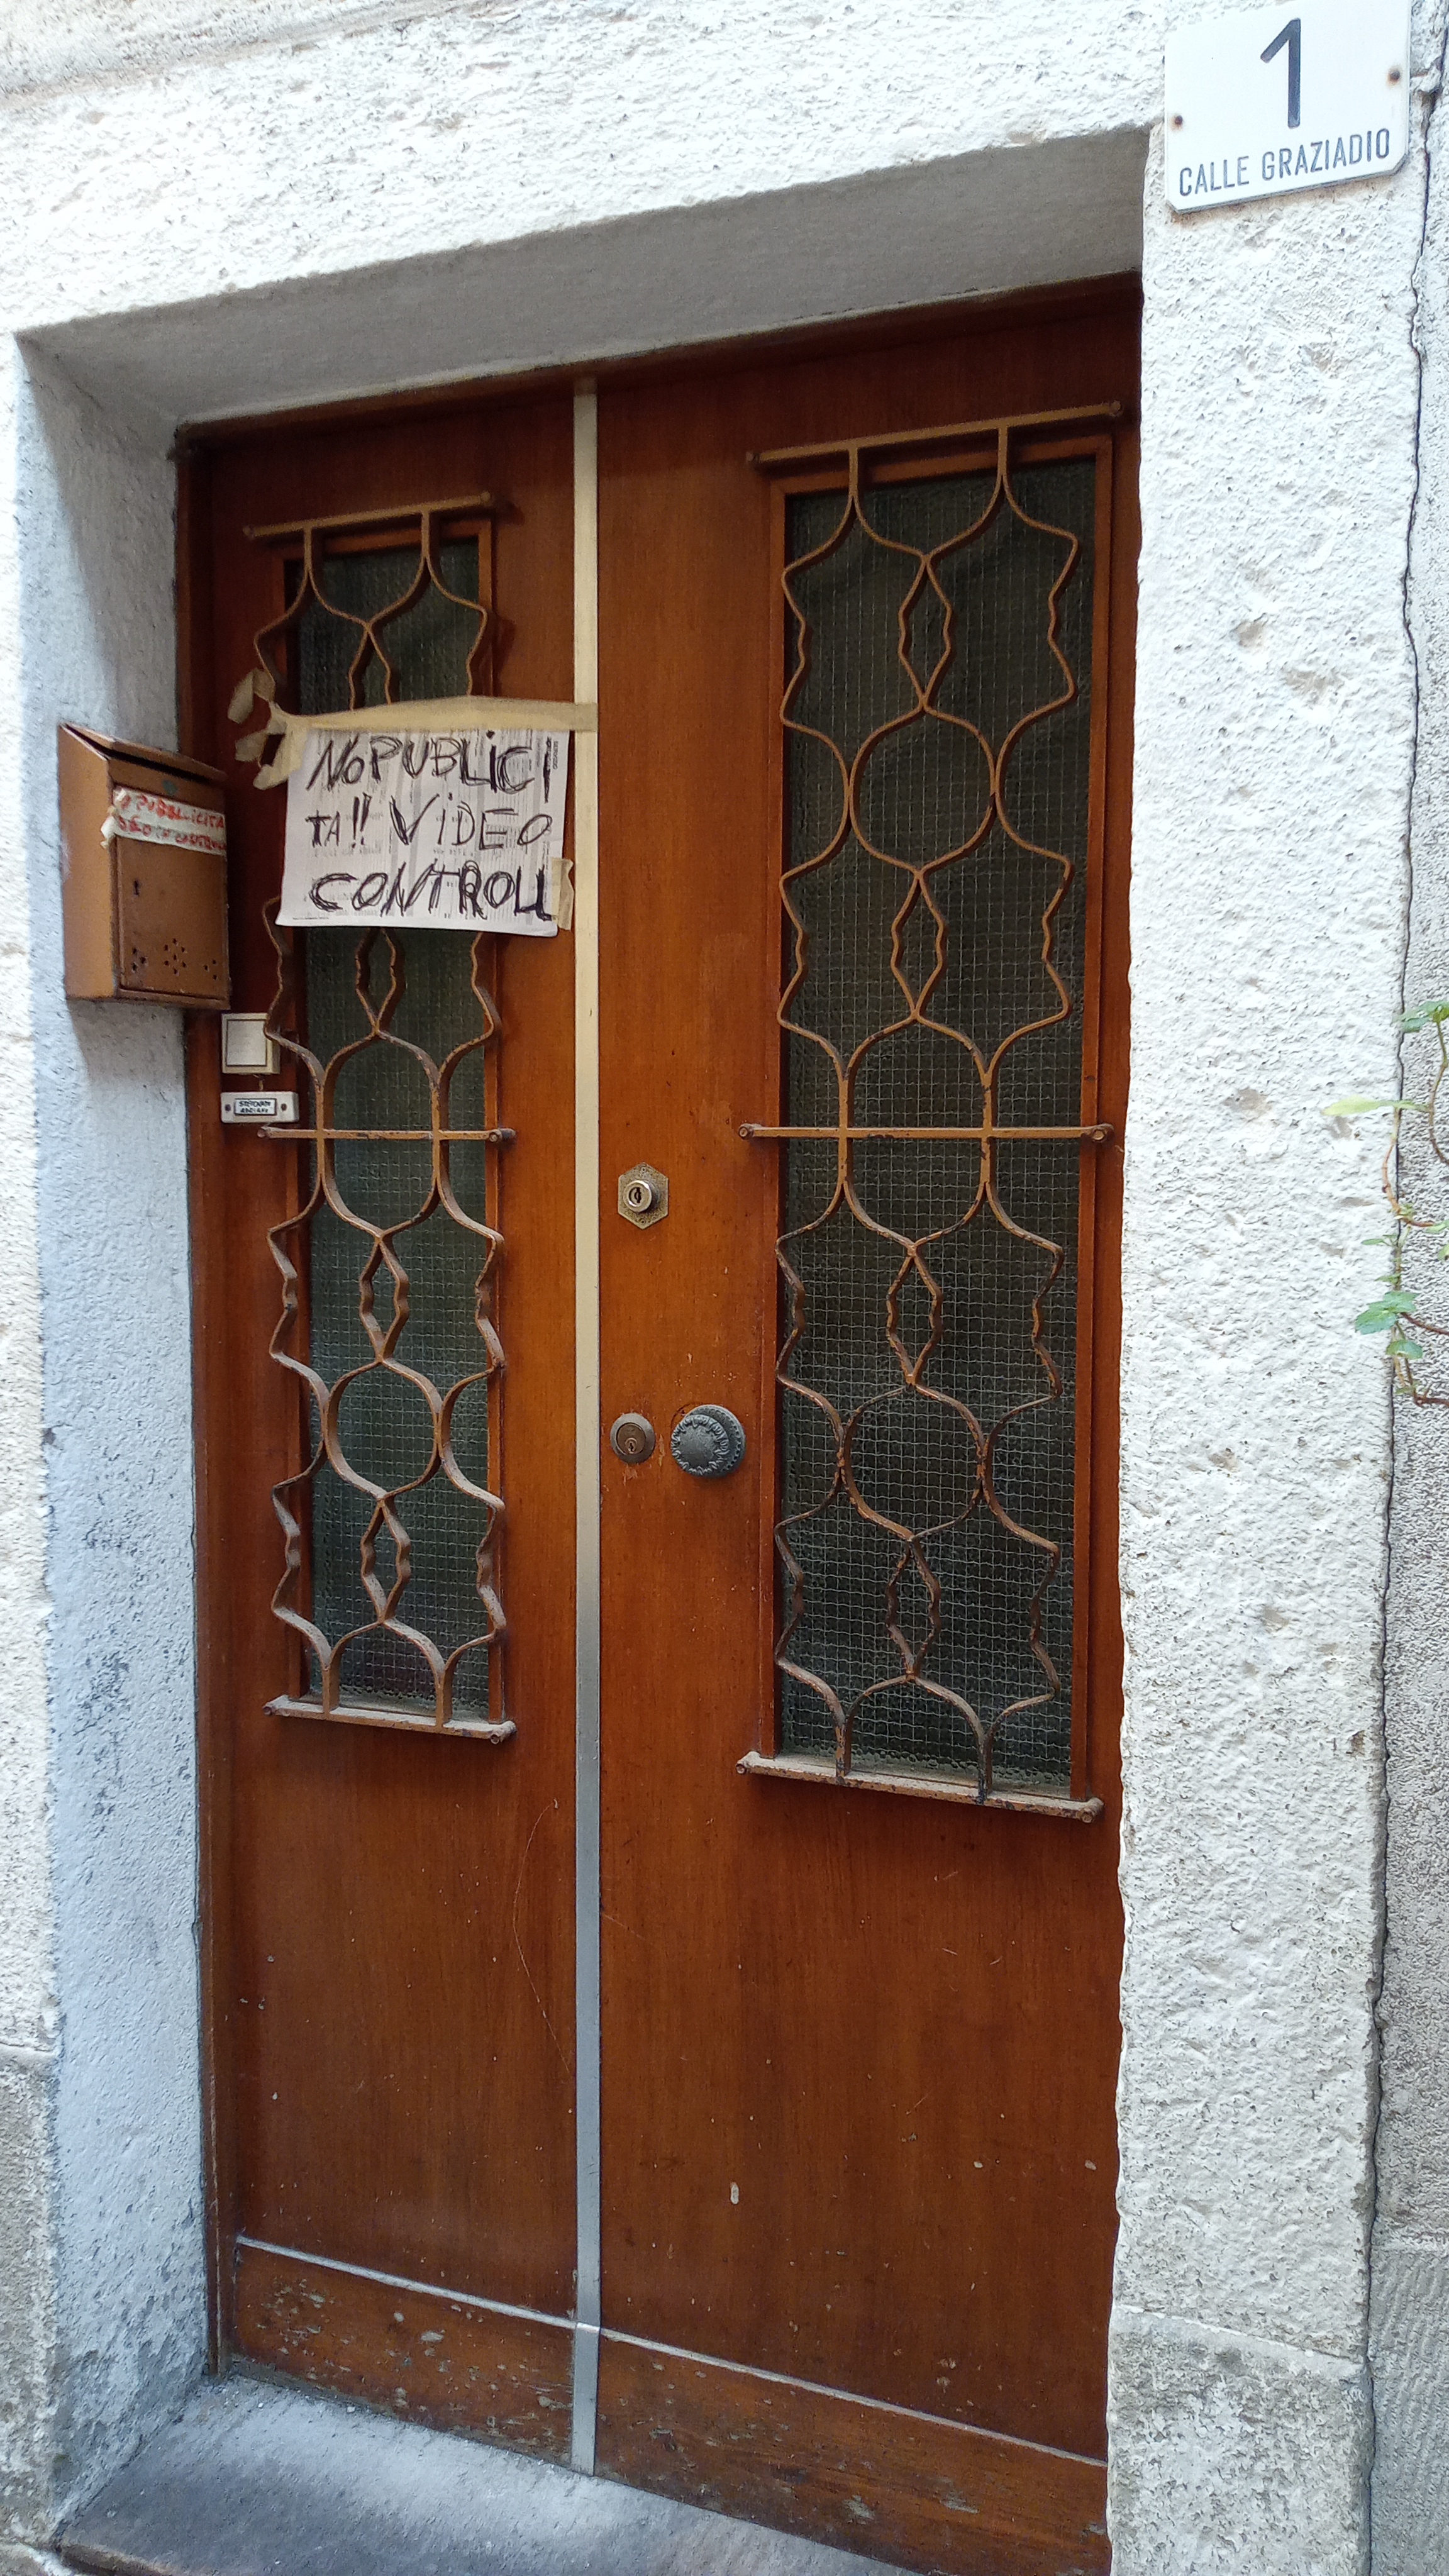 1
CALLE GRAZIADIO
NO PUBLICI
TA!! VIDEO
CONTROLL
PUBBLICITA